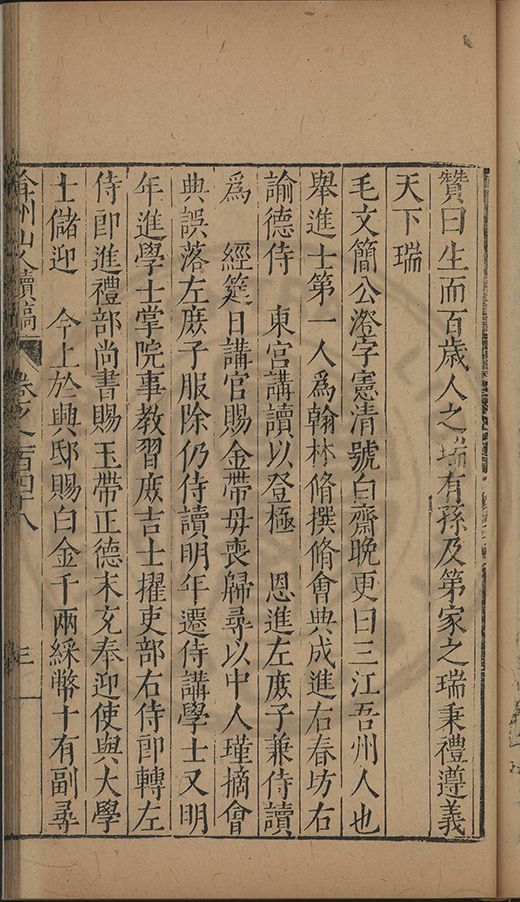 贊曰生而百歲人之瑞有孫及第家之瑞秉禮遵義
天下瑞
毛文簡公澄字憲清號白齋晚更曰三江吾州人也
舉進士第一人爲翰林脩撰脩會典成進右春坊右
諭德侍　東宮講讀以登極　恩進左庶子兼侍讀
爲　經筵日講官賜金帶毋喪歸尋以中人瑾摘會
典誤落左庶子服除仍侍讀明年遷侍講學士又明
年進學士掌院事教習庶吉士擢吏部右侍郎轉左
侍郎進禮部尚書賜玉帶正德末充奉迎使與大學
士儲迎　今上於興邸賜白金千兩綵幣十有副尋
弇州山人續稿　卷之一百四十八　三